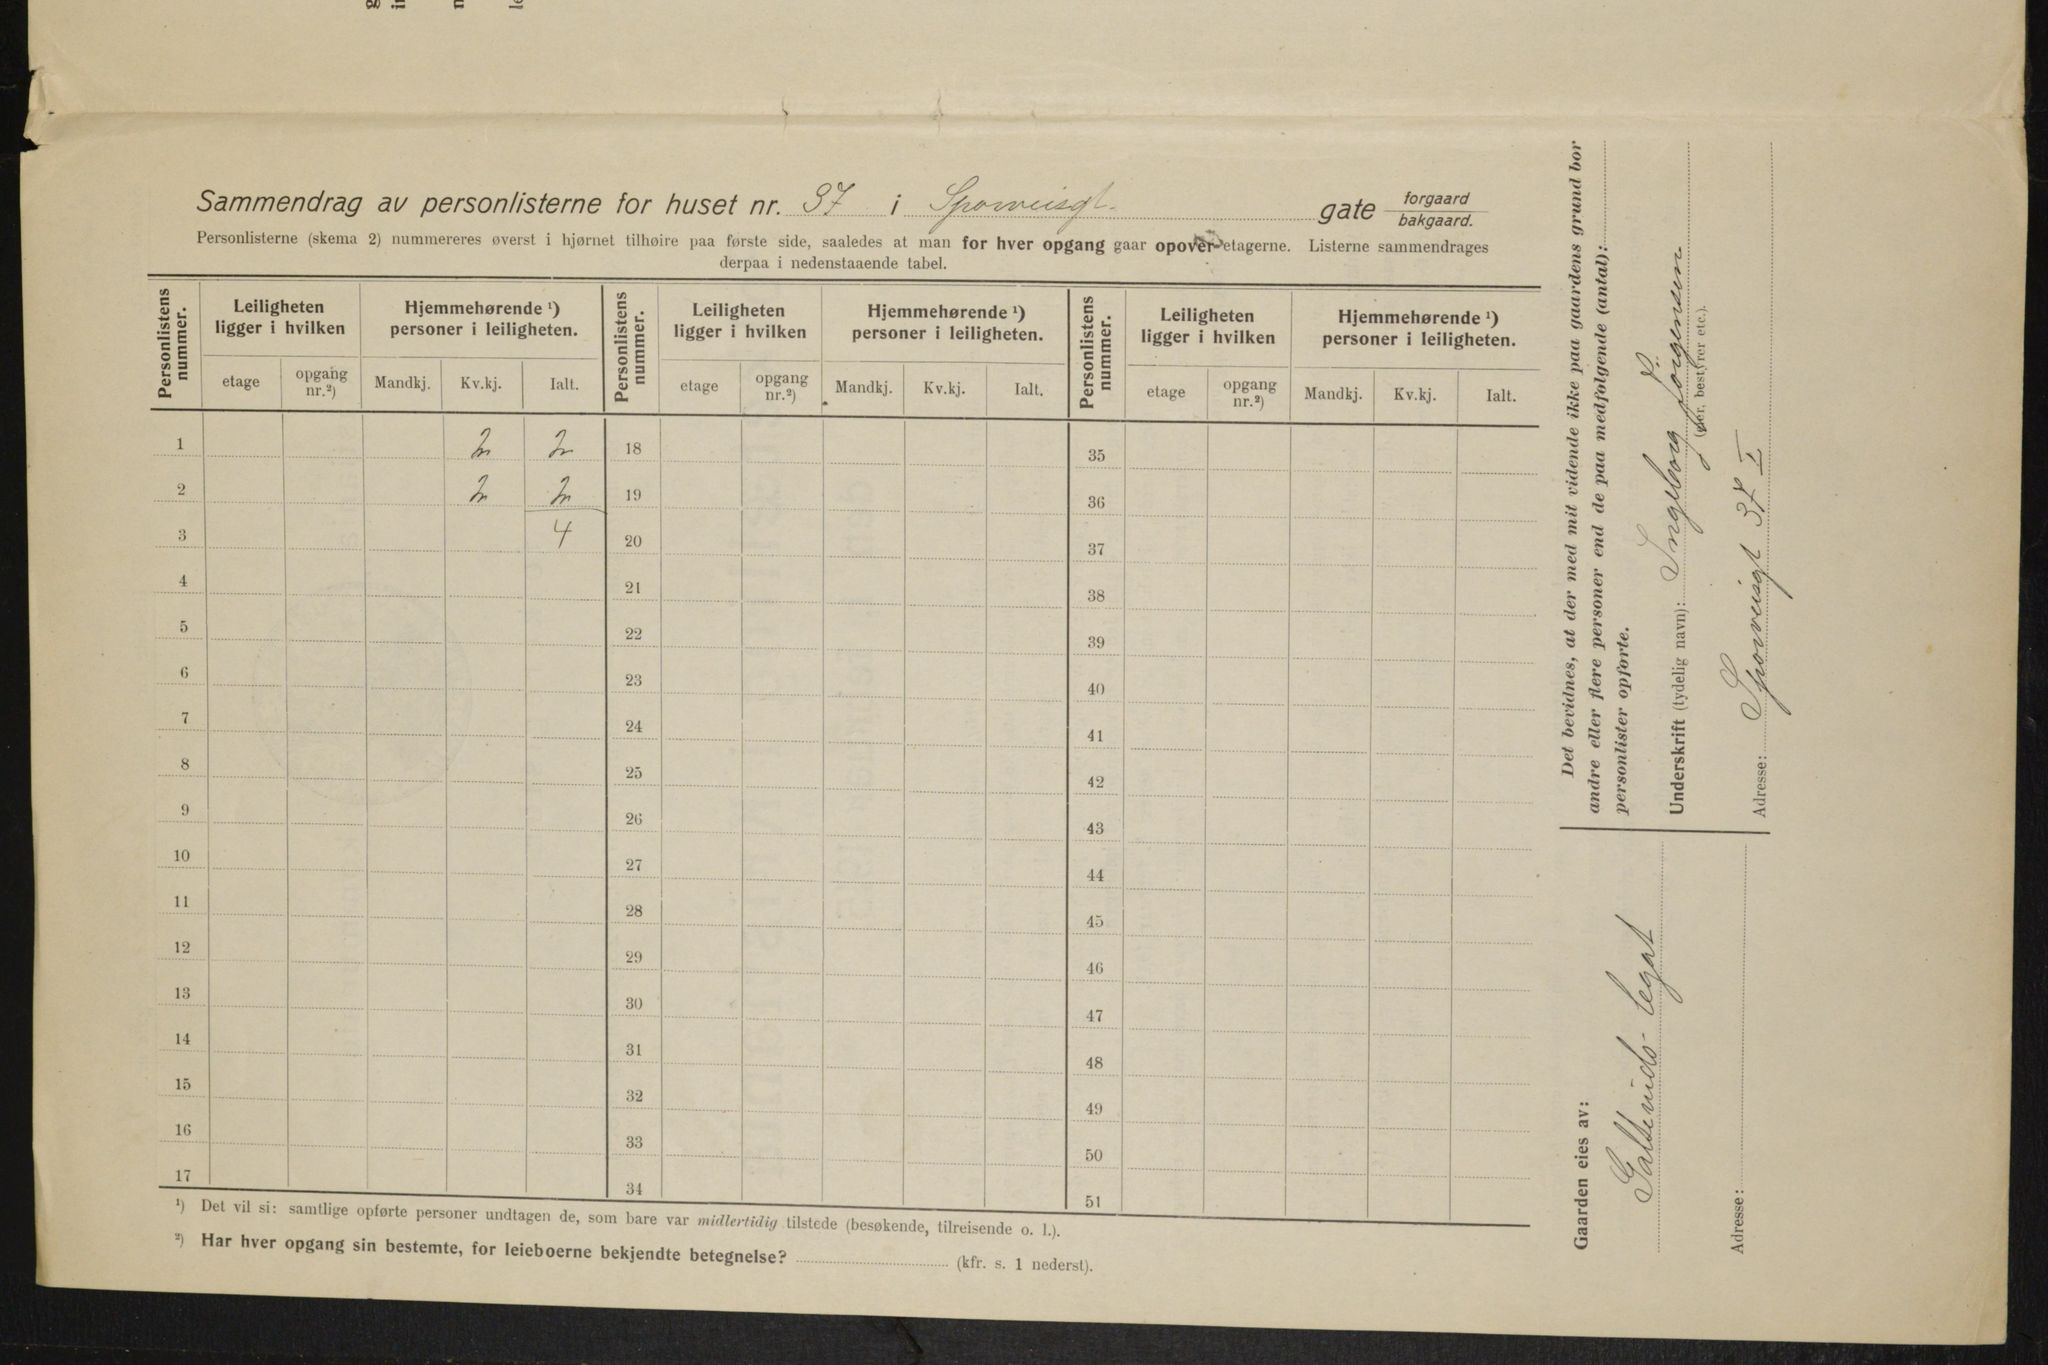 Sammendrag av personlisterne for huset nr. 37 i Sporveisgt. gate forgaard
bakgaard.
Personlisterne (skema 2) nummereres øverst i hjørnet tilhøire paa første side, saaledes at man for hver opgang gaar opover etagerne. Listerne sammendrages
derpaa i nedenstaaende tabel.
Personlistens nummer. Leiligheten ligger i hvilken Hjemmehørende ¹) personer i leiligheten. Personlistens nummer. Leiligheten ligger i hvilken Hjemmehørende ¹) personer i leiligheten. Personlistens nummer. Leiligheten ligger i hvilken Hjemmehørende ¹) personer i leiligheten.
etage opgang nr.²) Mandkj. Kv.kj. Ialt. etage opgang nr.²) Mandkj. Kv.kj. Ialt. etage opgang nr.²) Mandkj. Kv.kj. Ialt.
1 2 2 18 35
2 2 2 19 36
3 4 20 37
4 21 38
5 22 39
6 23 40
7 24 41
8 25 42
9 26 43
10 27 44
11 28 45
12 29 46
13 30 47
14 31 48
15 32 49
16 33 50
17 34 51
¹) Det vil si: samtlige opførte personer undtagen de, som bare var midlertidig tilstede (besøkende, tilreisende o. l.).
²) Har hver opgang sin bestemte, for leieboerne bekjendte betegnelse? (kfr. s. 1 nederst).
Det bevidnes, at der med mit vidende ikke paa gaardens grund bor
andre eller flere personer end de paa medfølgende (antal):
personlister opførte.
Underskrift (tydelig navn): Ingeborg Jörgensen.
(eier, bestyrer etc.).
Adresse: Sporveisgt 37 I
Gaarden eies av:
legat
Adresse: